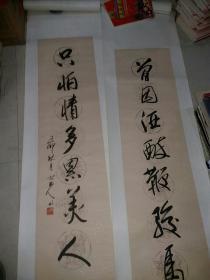 曾因酒醉鞭名馬
只怕情多累美人